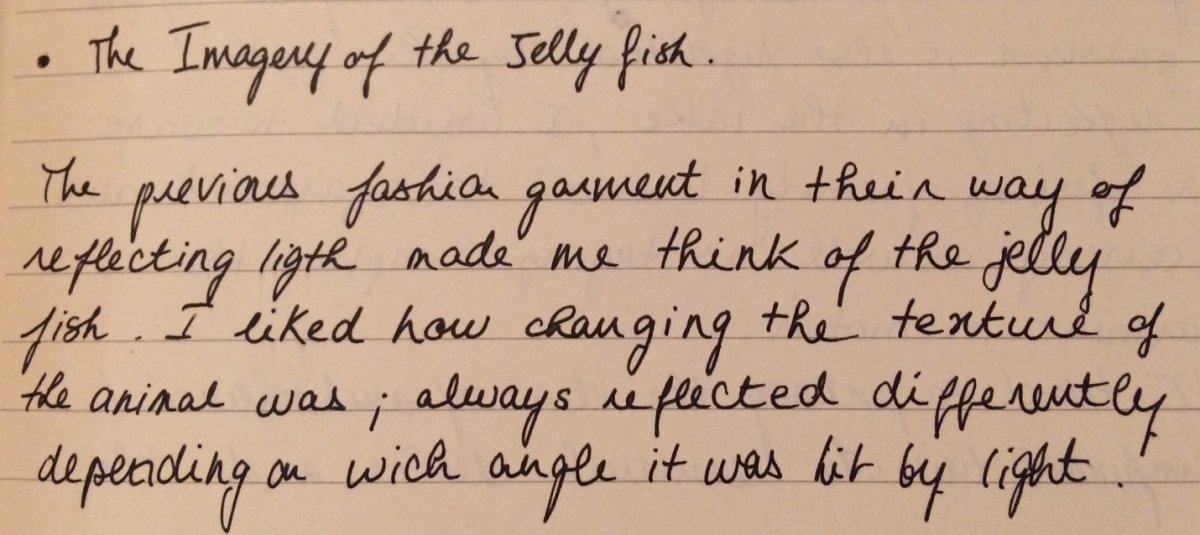 • The Imagery of the Jelly fish.
The previous fashion garment in their way of
reflecting ligth made me think of the jelly
fish. I liked how changing the texture of
the animal was; always reflected differently
depending on wich angle it was hit by light.